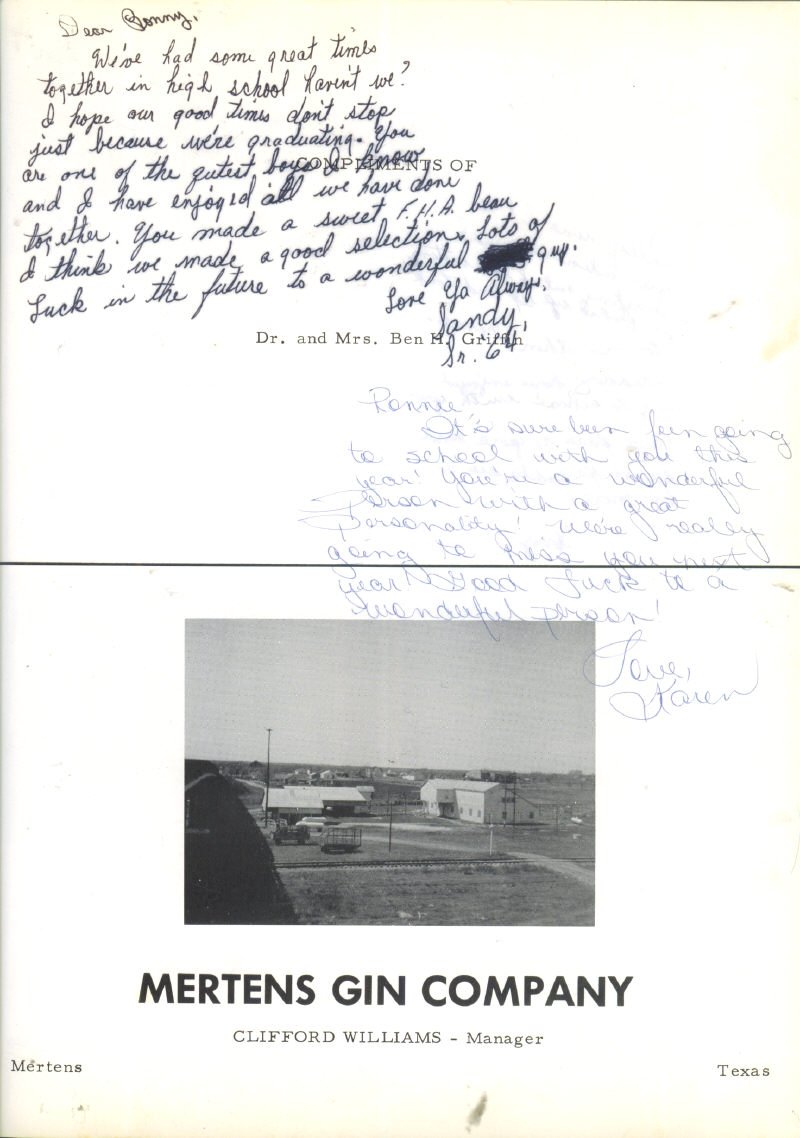 Dear Ronny,
We've had some great times
together in high school haven't we?
I hope our good times don't stop
just because we're graduating. You
are one of the qutest boys I know
COMPLIMENTS OF
and I have enjoyed all we have done
together. You made a sweet F.H.A. beau
I think we made a good selection. Lots of
Luck in the future to a wonderful guy.
Love Ya Always,
Sandy,
Sr. 64
Dr. and Mrs. Ben H. Griffin
Ronnie
It's sure been fun going
to school with you this
year! You're a wonderful
person with a great
personality! We're really
going to miss you next
year! Good Luck to a
wonderful person!
Love,
Karen
MERTENS GIN COMPANY
CLIFFORD WILLIAMS - Manager
Mertens Texas